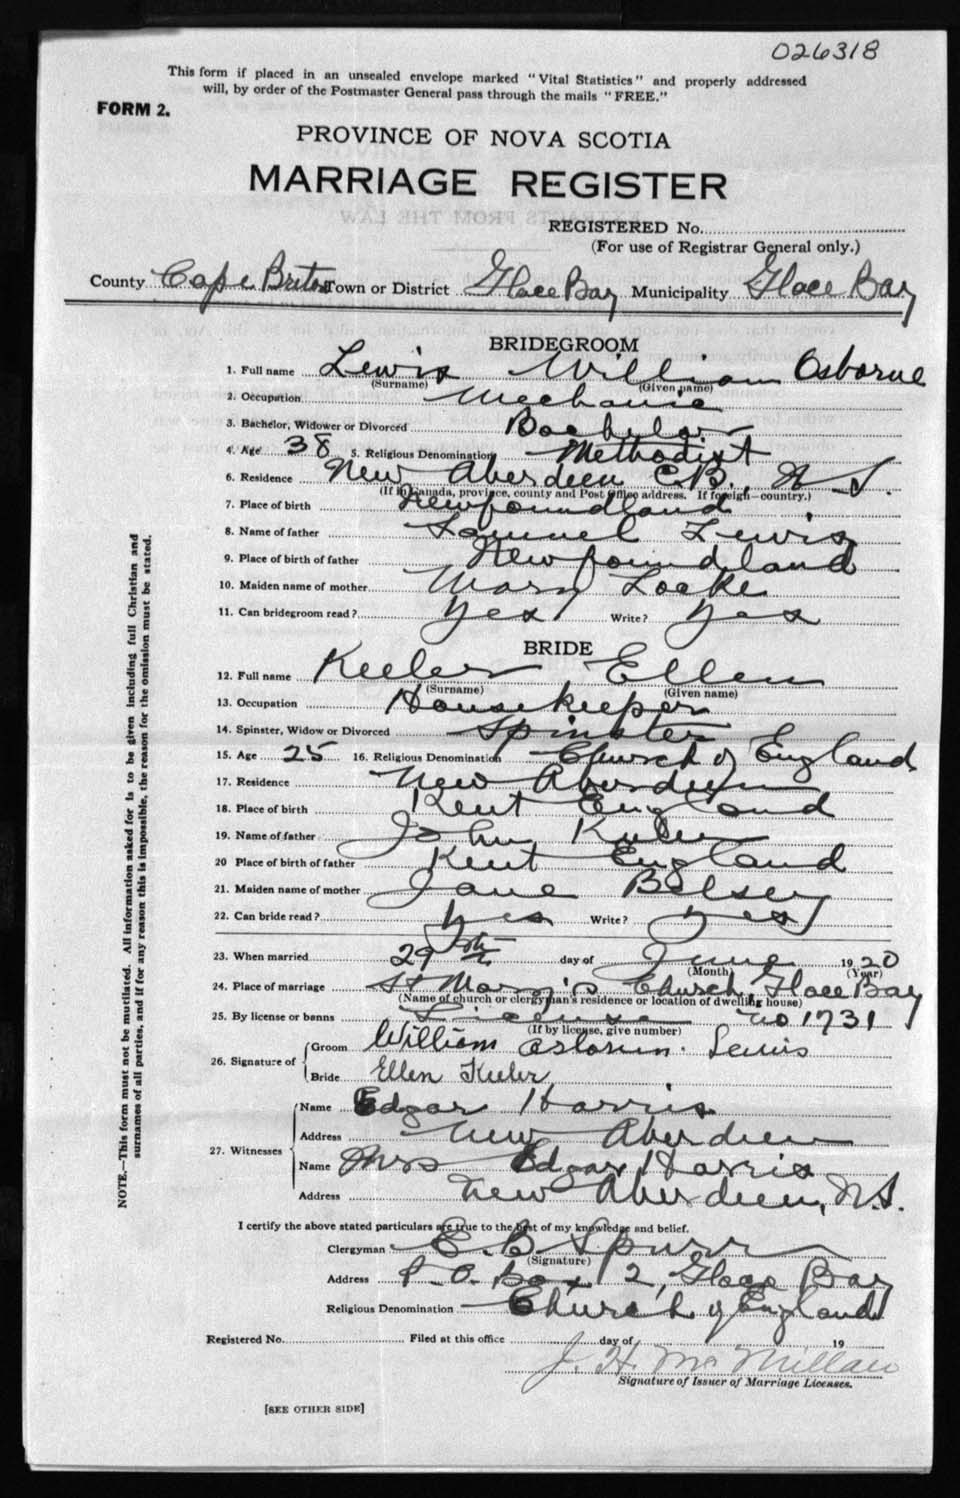 026318
This form if placed in an unsealed envelope marked "Vital Statistics" and properly addressed
will, by order of the Postmaster General pass through the mails "FREE."
FORM 2.
PROVINCE OF NOVA SCOTIA
MARRIAGE REGISTER
REGISTERED No.
(For use of Registrar General only.)
County Cape Breton Town or District Glace Bay Municipality Glace Bay
BRIDEGROOM
1. Full name Lewis William Osborne
(Surname) (Given name)
2. Occupation Mechanic
3. Bachelor, Widower or Divorced Bachelor
4. Age 38 5. Religious Denomination Methodist
6. Residence New Aberdeen C.B., N.S.
(If in Canada, province, county and Post Office address. If foreign—country.)
7. Place of birth Newfoundland
8. Name of father Samuel Lewis
9. Place of birth of father Newfoundland
10. Maiden name of mother Mary Locke
11. Can bridegroom read? Yes Write? Yes
BRIDE
12. Full name Keeler Ellen
(Surname) (Given name)
13. Occupation Housekeeper
14. Spinster, Widow or Divorced Spinster
15. Age 25 16. Religious Denomination Church of England
17. Residence New Aberdeen
18. Place of birth Kent England
19. Name of father John Keeler
20 Place of birth of father Kent England
21. Maiden name of mother Jane Belsey
22. Can bride read? Yes Write? Yes
23. When married 29th day of June 1920
(Month) (Year)
24. Place of marriage St Mary's Church, Glace Bay
(Name of church or clergyman's residence or location of dwelling house)
25. By license or banns License no 1731
(If by license, give number)
26. Signature of Groom William Lewis
Bride Ellen Keeler
27. Witnesses Name Edgar Harris
Address New Aberdeen
Name Mrs Edgar Harris
Address New Aberdeen, N.S.
I certify the above stated particulars are true to the best of my knowledge and belief.
Clergyman E. B. Spurr
(Signature)
Address P.O. Box 12, Glace Bay
Religious Denomination Church of England
Registered No. Filed at this office day of 19
J. H. McMillan
Signature of Issuer of Marriage Licenses.
[SEE OTHER SIDE]
NOTE.—This form must not be mutilated. All information asked for is to be given including full Christian and
surnames of all parties, and if for any reason this is impossible, the reason for the omission must be stated.